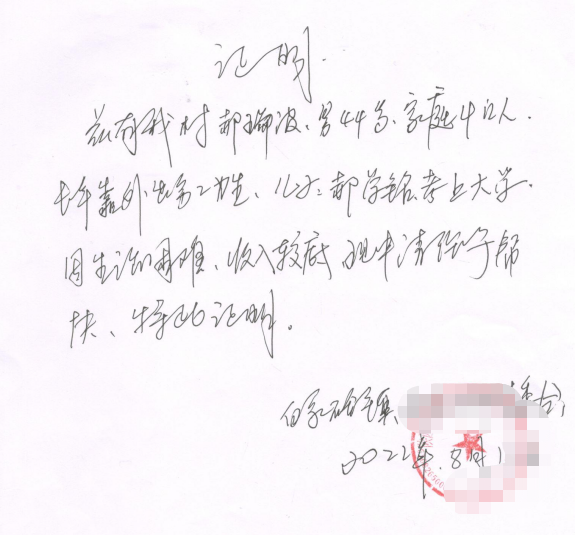 证明.
兹有我村郝瑞波、男44岁、家庭4口人.
长年靠外出务工为生、儿子:郝学铭考上大学.
因生活困难、收入较底 现申请给予帮
扶、特此证明。
白家硷镇
2022年.8月1